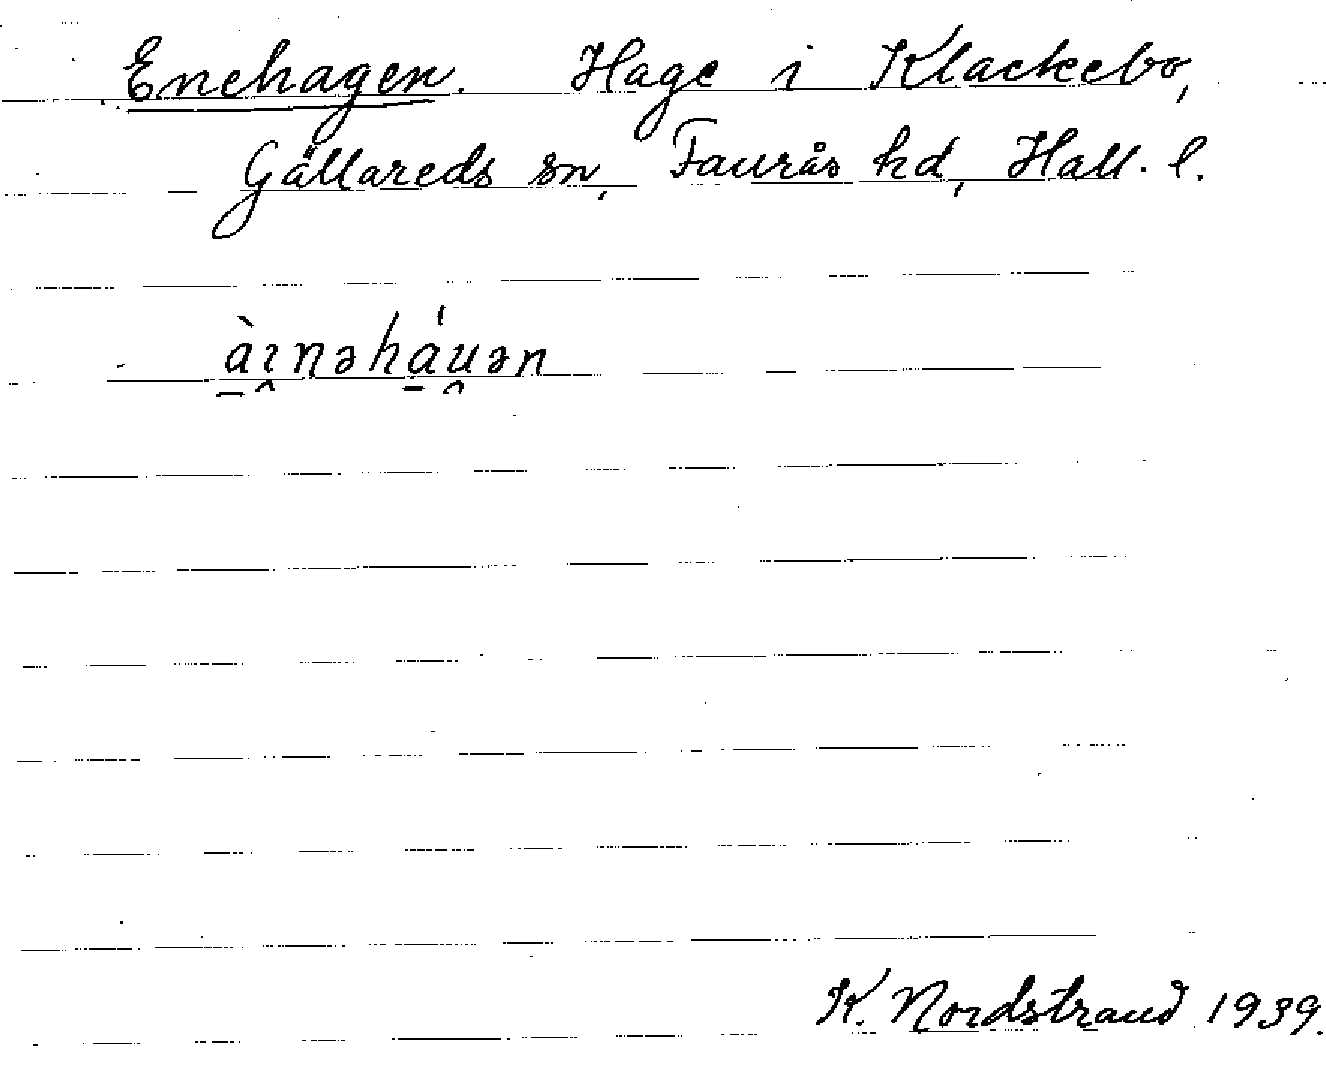 Enehagen. Hage i Klackebo,
Gällareds sn, Faurås hd, Hall. l.
à̠ɪ̯nəhá̠u̯ən
K. Nordstrand 1939.